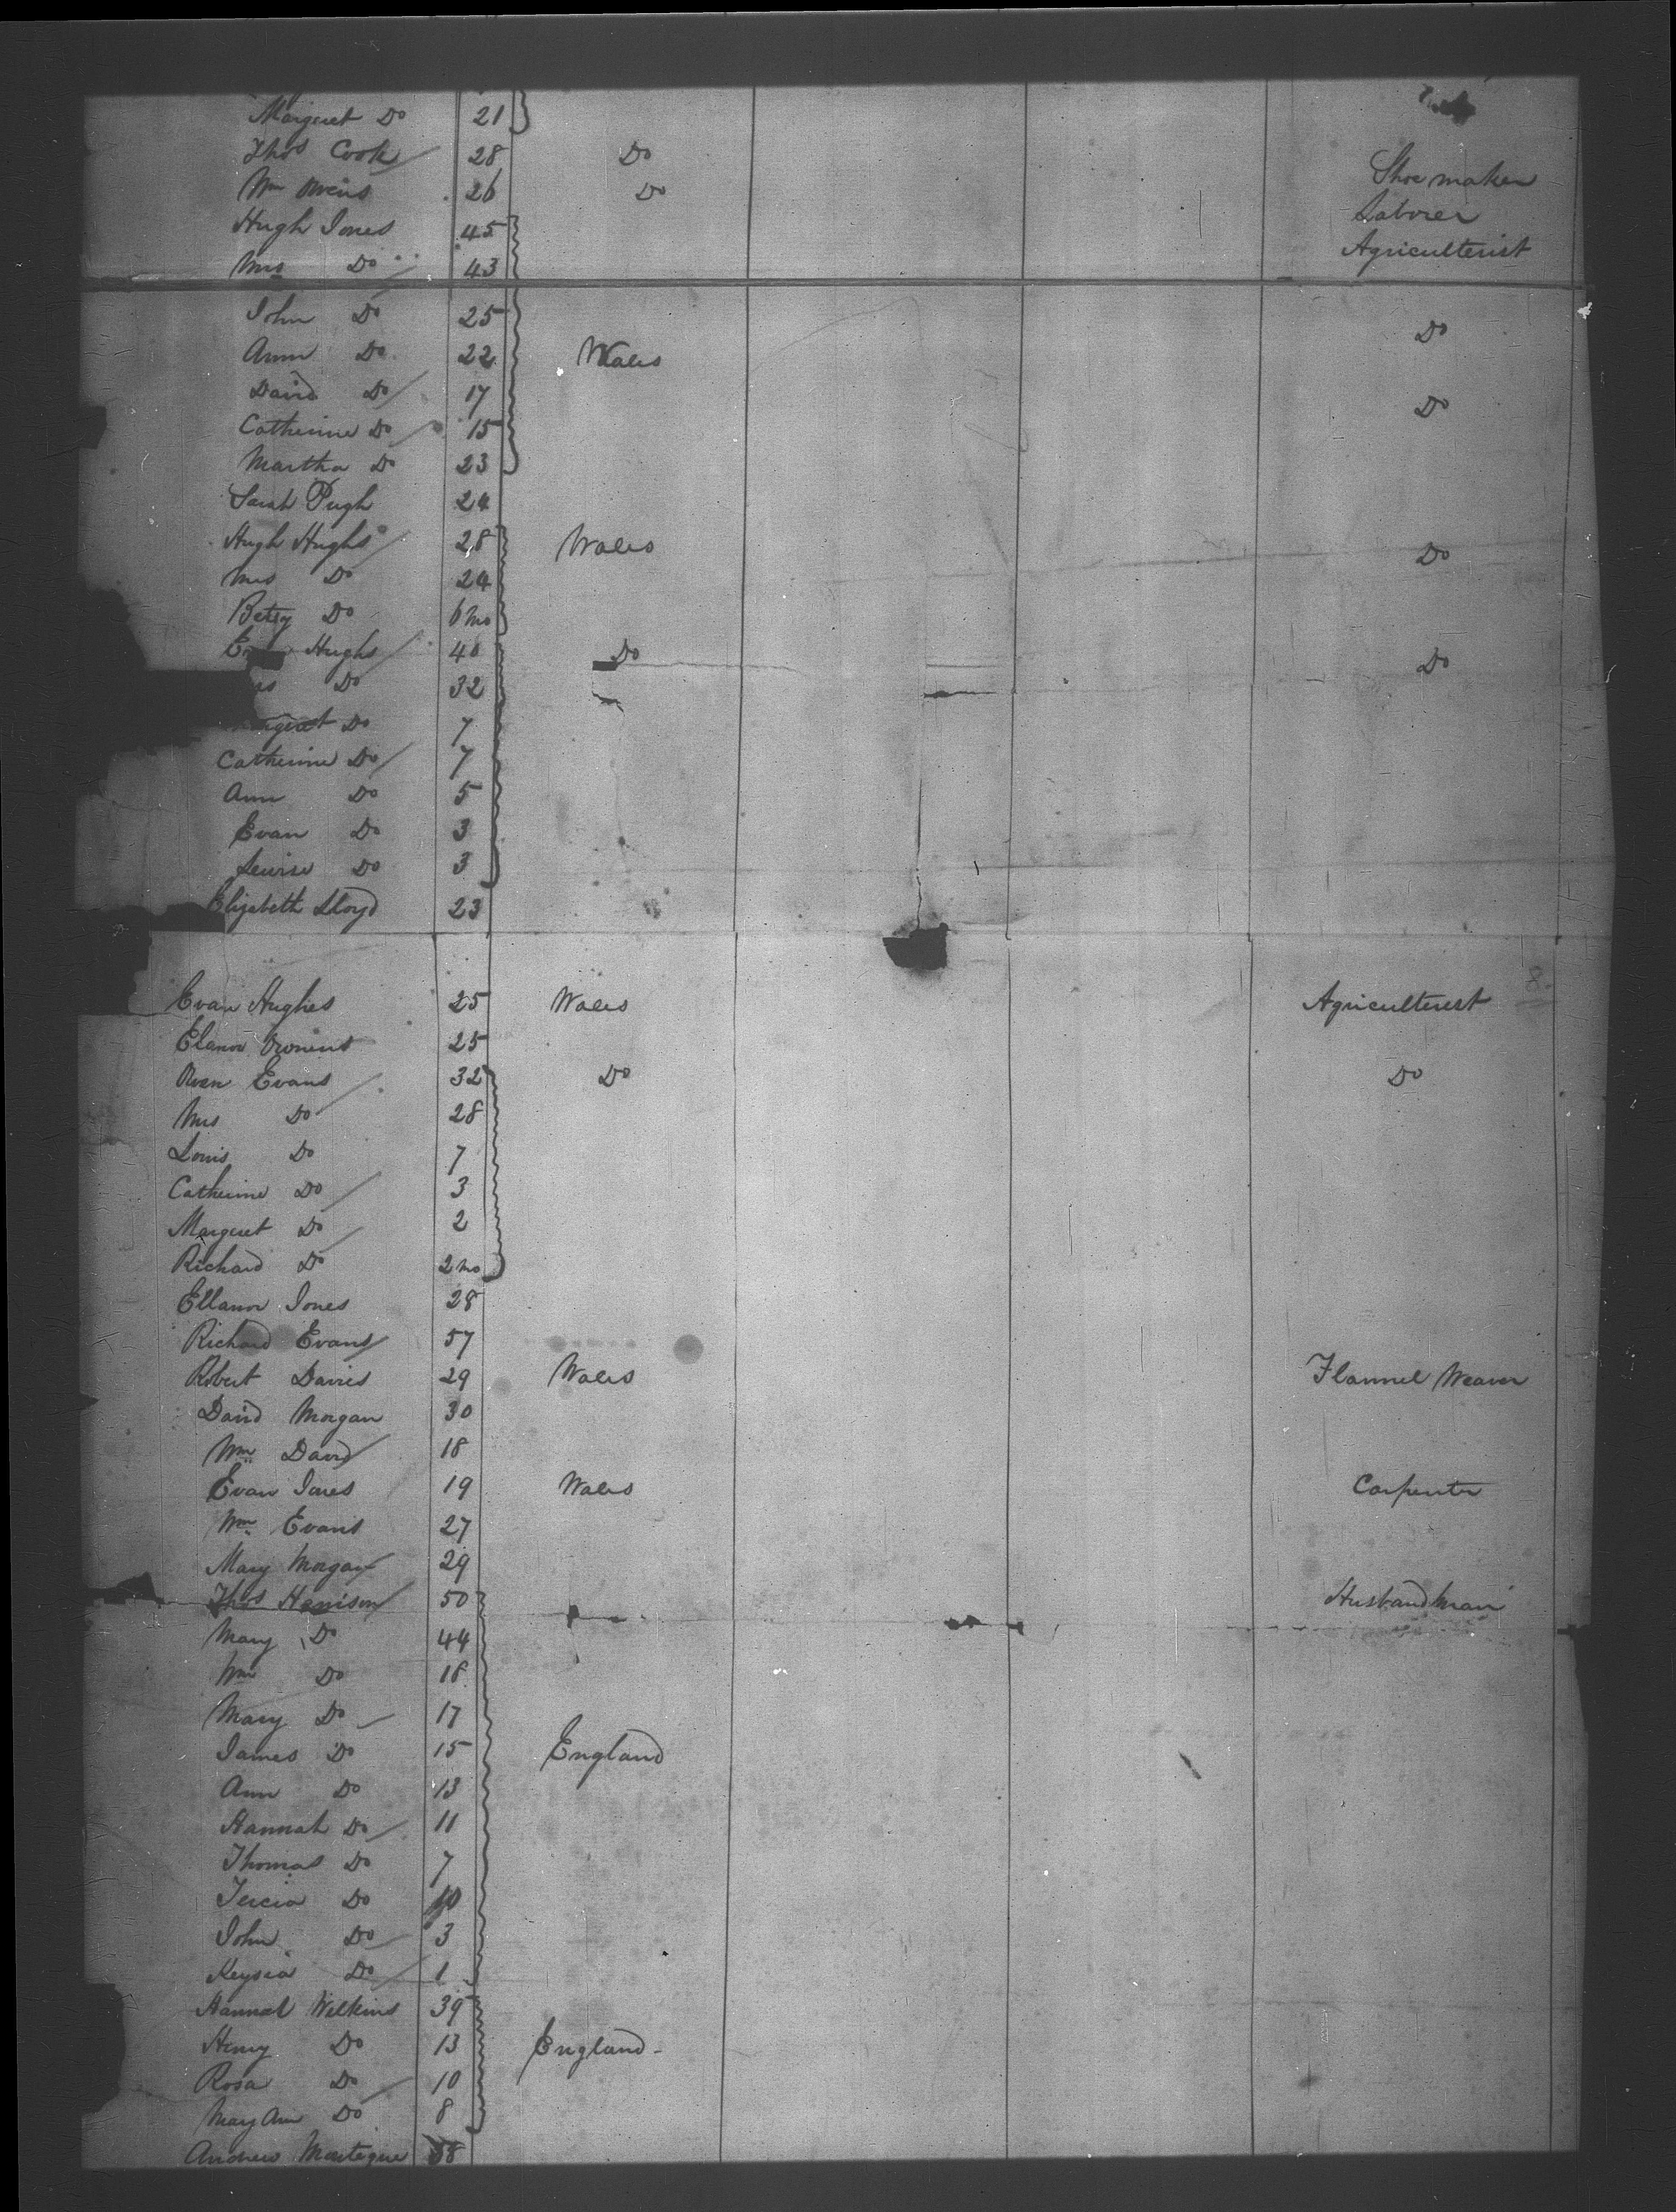 Margeret Do 21
Thos Cook 28 Do Shoe maker
Wm Owens 26 Do Laborer
Hugh Jones 45 Agriculterist
Mrs Do 43
John Do 25 Do
Ann Do 22 Wales
David Do 17 Do
Catherine Do 15
Martha Do 23
Sarah Pugh 24
Hugh Hughs 28 Wales Do
Mrs Do 24
Betsy Do 6 mo
Hughs 40 Do Do
Do 32
Do 7
Catherine Do 7
Ann Do 5
Evan Do 3
Lewise Do 3
Elizabeth Lloyd 23
8
Evan Hughes 25 Wales Agriculterest
Elanor 25
Owen Evans 32 Do Do
Mrs Do 28
Louis Do 7
Catherine Do 3
Margeret Do 2
Richard Do 2 mo
Ellanor Jones 28
Richard Evans 57
Robert Davies 29 Wales Flannel Weaver
David Morgan 30
Wm David 18
Evan Jones 19 Wales Carpenter
Wm Evans 27
Mary Morgan 29
Thos Harrison 50 Husbandman
Mary Do 44
Wm Do 18
Mary Do 17
James Do 15 England
Ann Do 13
Hannah Do 11
Thomas Do 7
Tercia Do
John Do 3
Keysia Do 1
Hannah Wilkins 39
Henry Do 13 England
Rosa Do 10
Mary Ann Do 8
Andrew Montegue 38